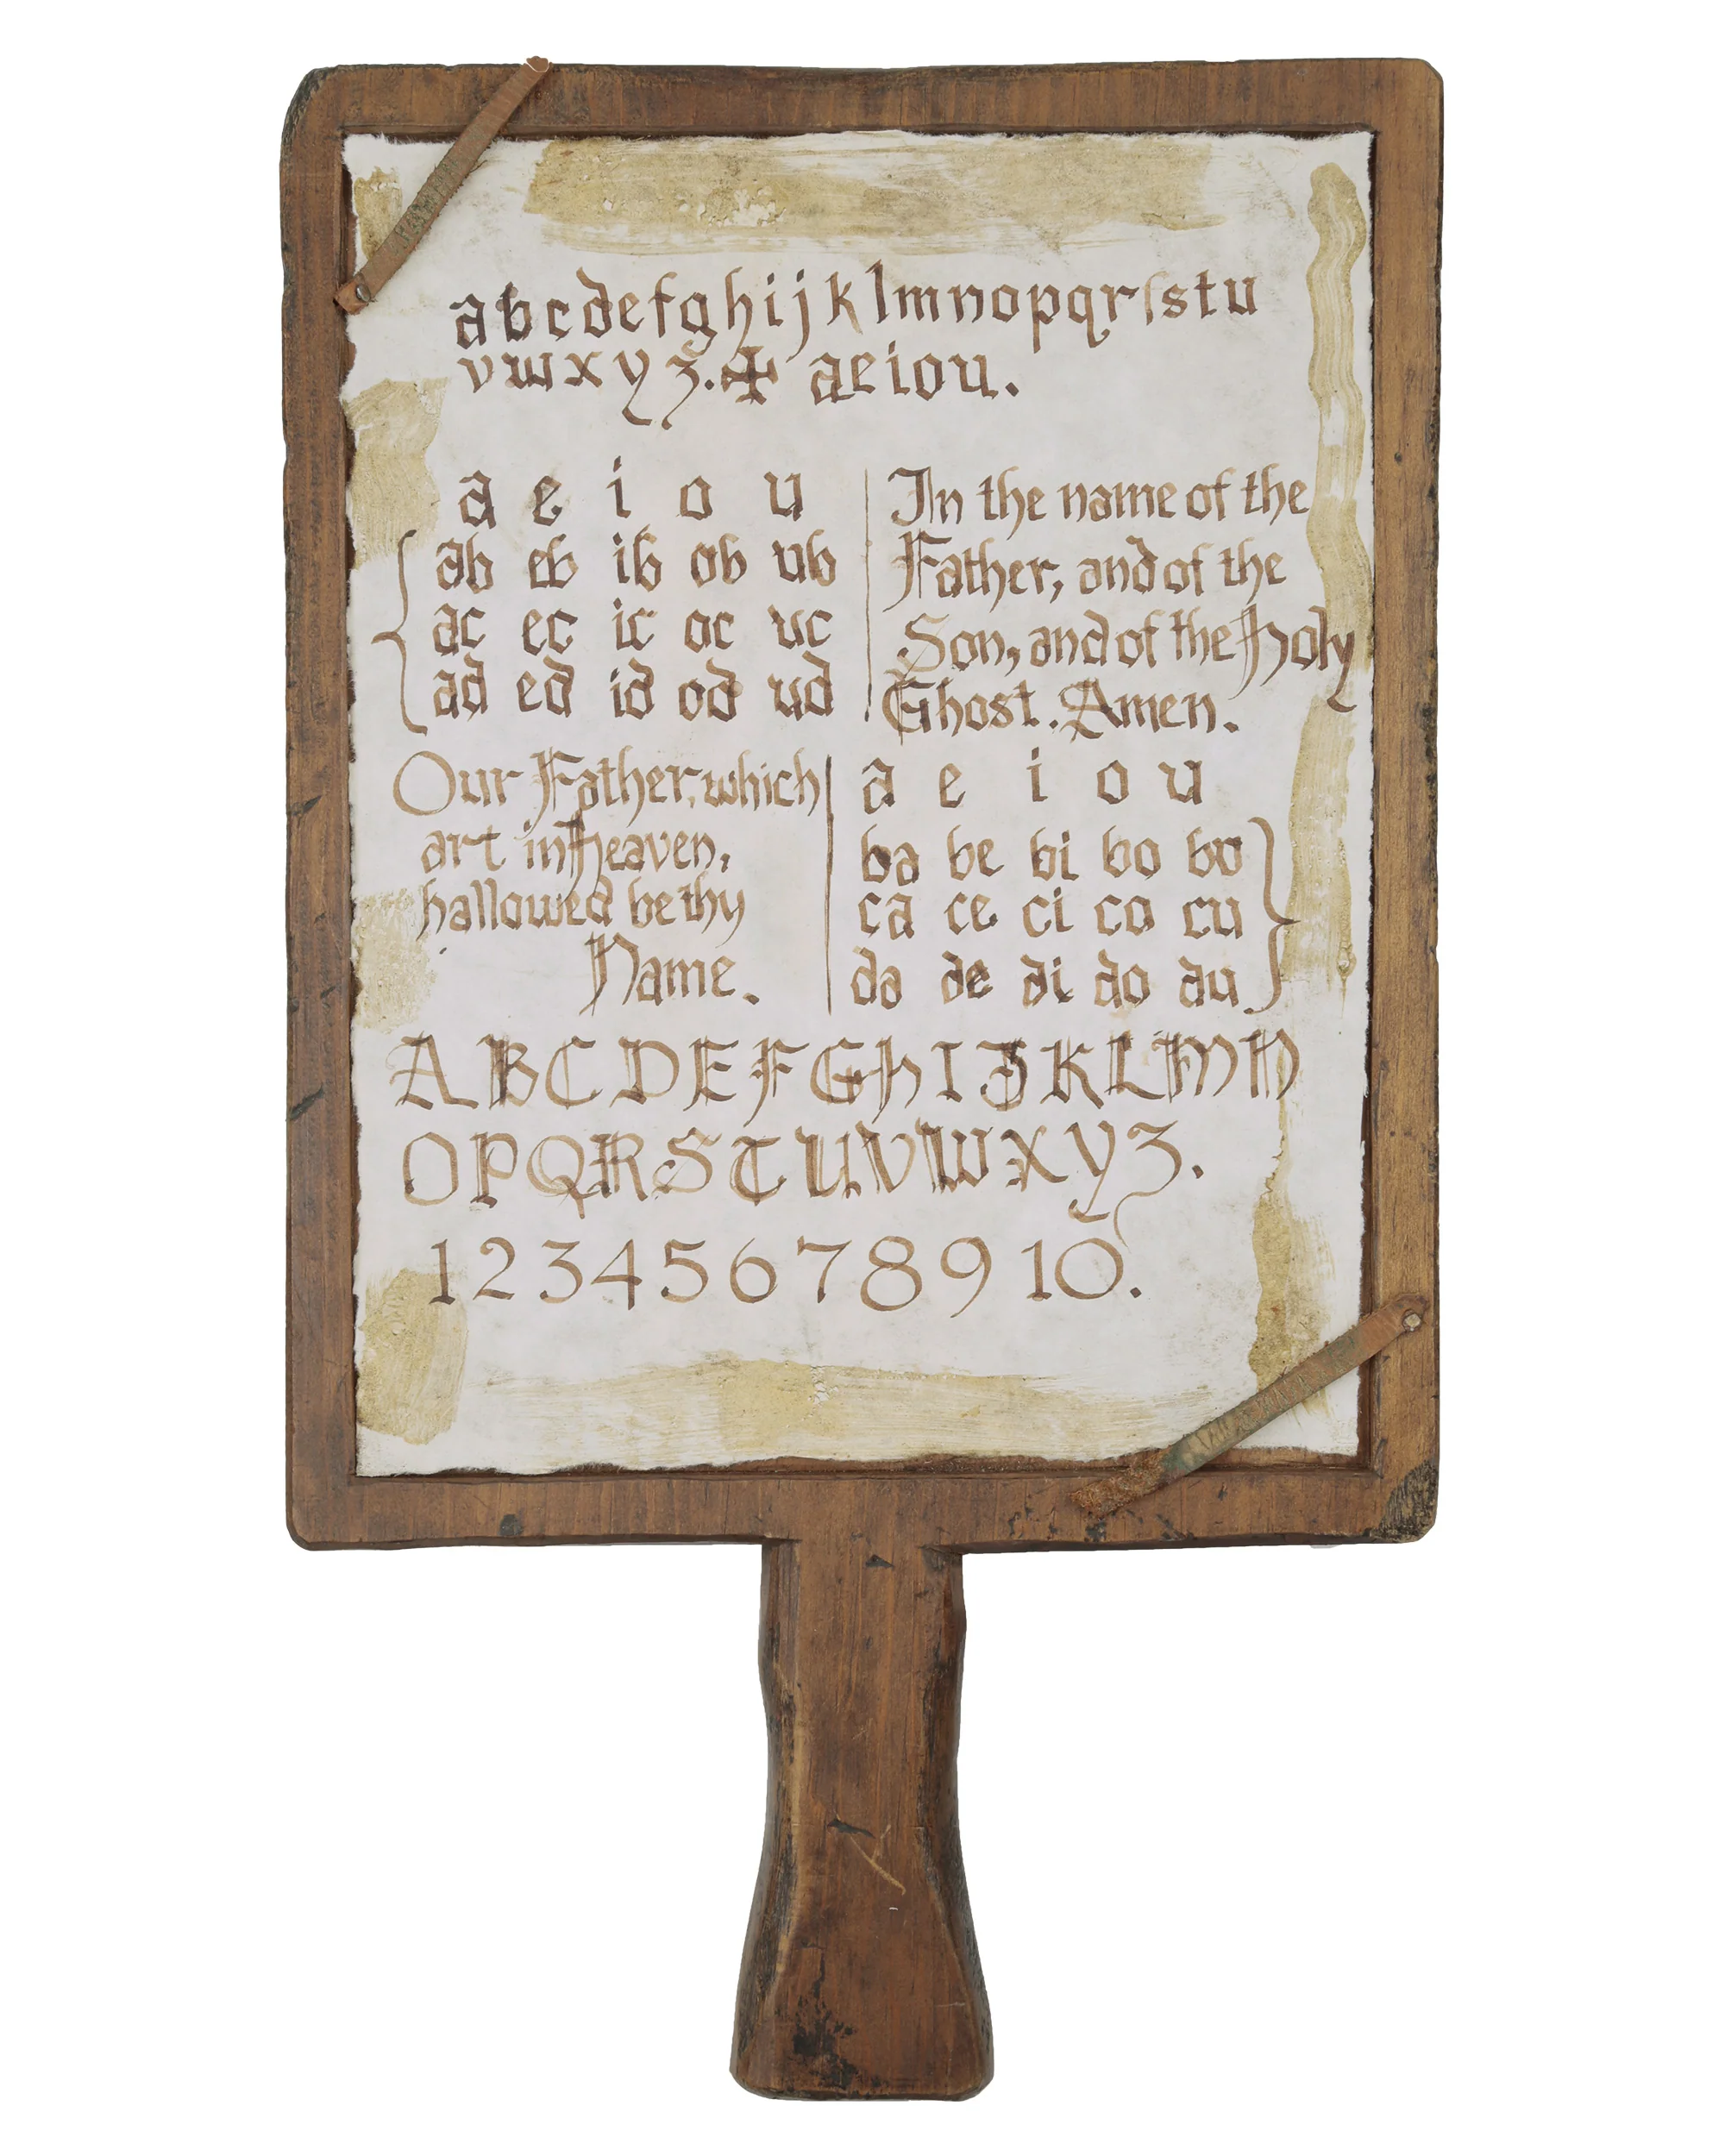 abcdefghijklmnopqrſstu
vwxyz.✠ aeiou.
a e i o u
ab eb ib ob ub
ac ec ic oc uc
ad ed id od ud
In the name of the
Father, and of the
Son, and of the Holy
Ghost. Amen.
Our Father, which
art in Heaven,
hallowed be thy
Name.
a e i o u
ba be bi bo bo
ca ce ci co cu
da de di do du
ABCDEFGHIJKLMN
OPQRSTUVWXYZ.
1 2 3 4 5 6 7 8 9 10.